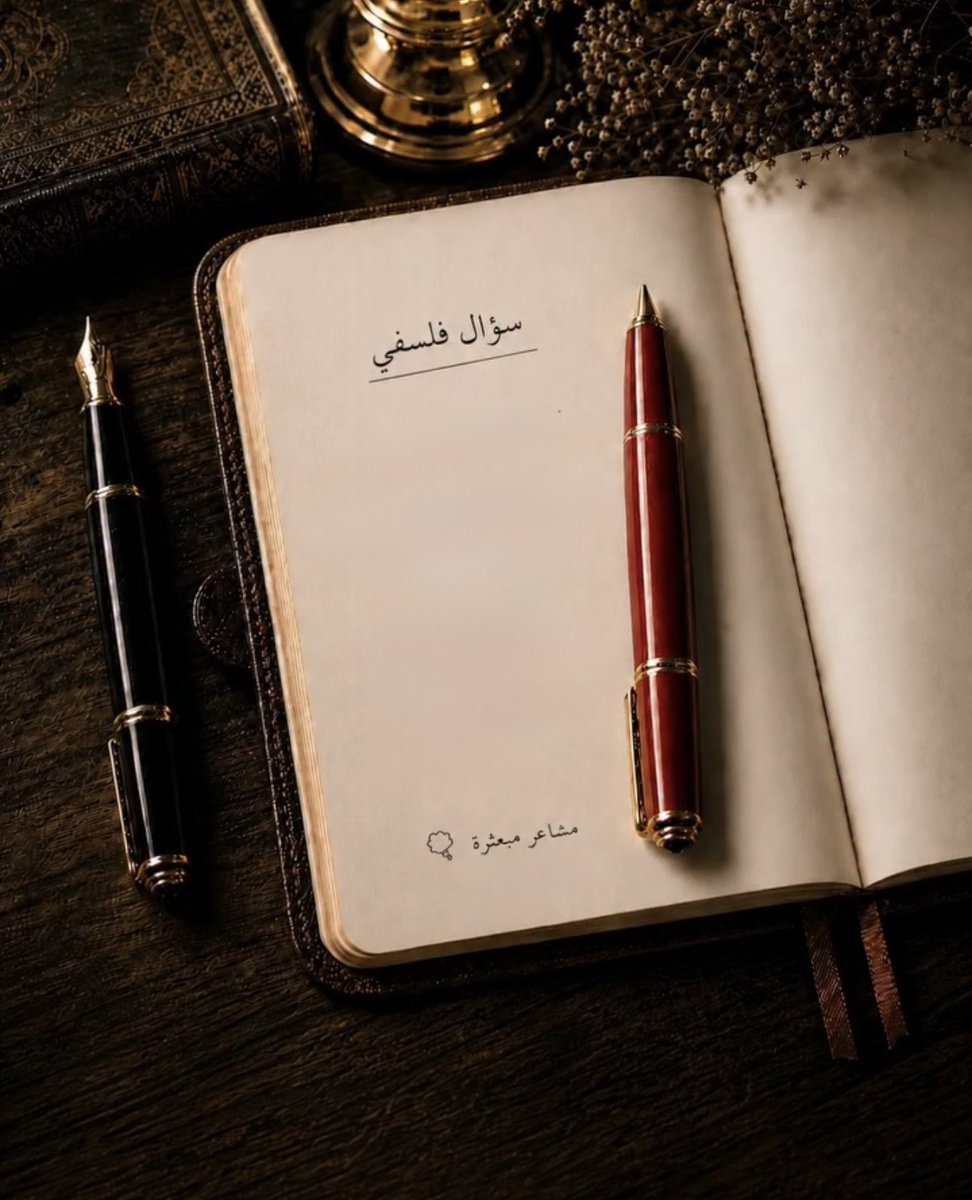 سؤال فلسفي
مشاعر مبعثرة